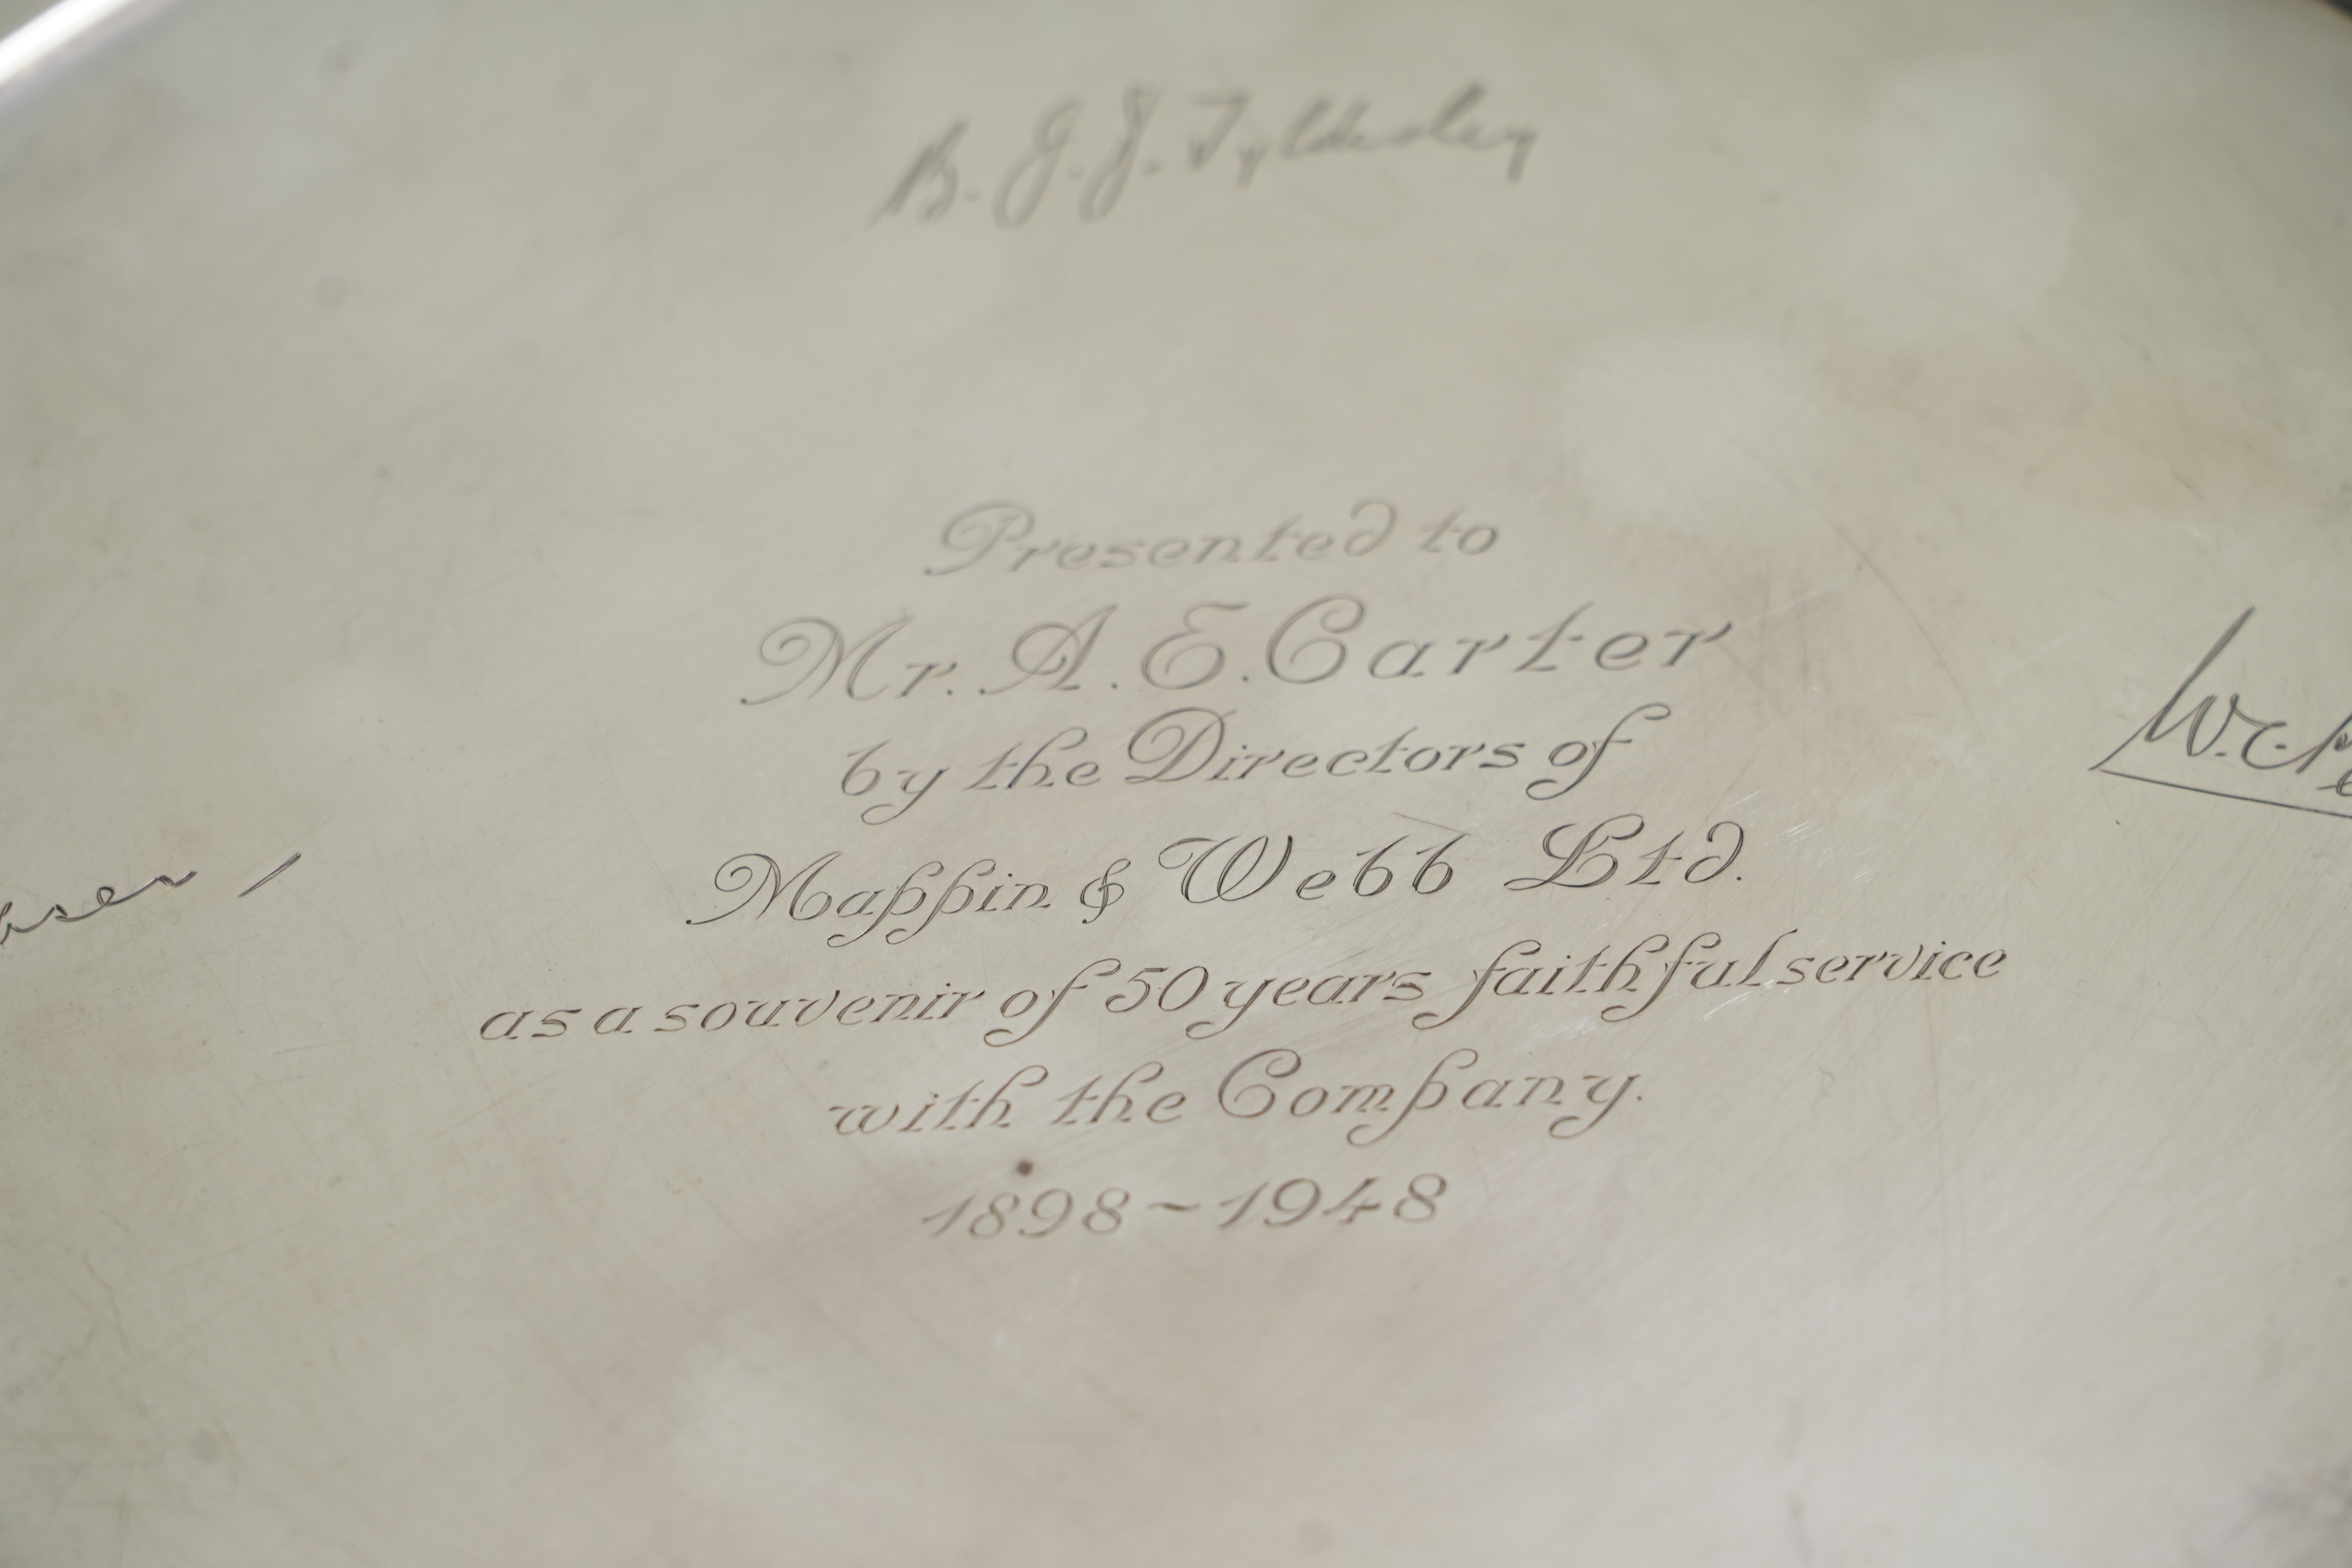 B. J. J. Tyldesley
Presented to
Mr. A. E. Carter
by the Directors of
Mappin & Webb Ltd.
as a souvenir of 50 years faithful service
with the Company.
1898~1948
W.C.